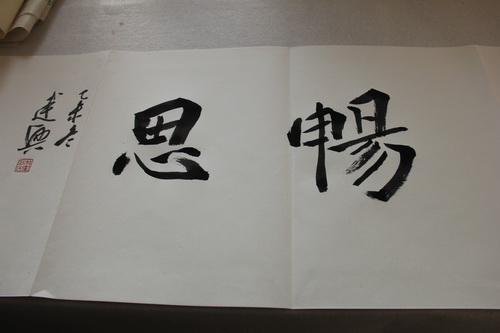 暢思
乙未冬
建興